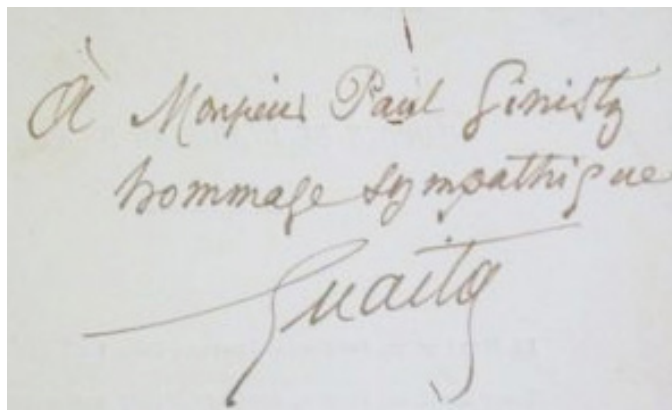 À Monsieur Paul Ginisty
hommage sympathique
Guaita